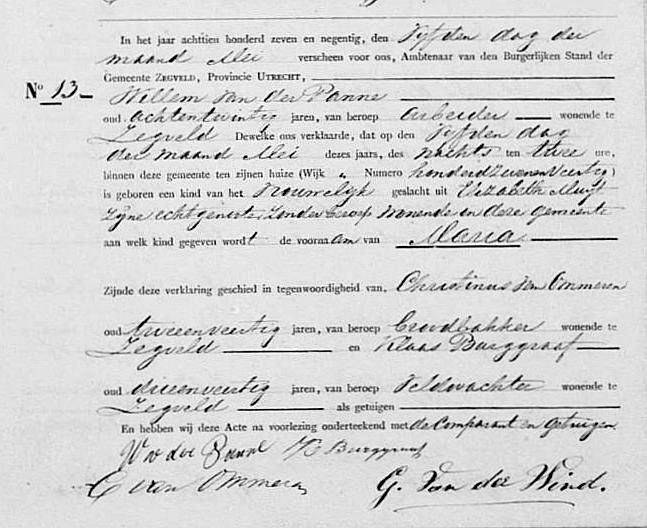 In het jaar achttien honderd zeven en negentig, den Vijfden dag der
maand Mei verscheen voor ons, Ambtenaar van den Burgerlijken Stand der
Gemeente ZEGVELD, Provincie UTRECHT,
No 13
Willem van der Panne
oud achtentwintig jaren, van beroep Arbeider wonende te
Zegveld Dewelke ons verklaarde, dat op den Vijfden dag
der maand Mei dezes jaars, des nachts ten twee ure,
binnen deze gemeente ten zijnen huize (Wijk " Numero honderdzevenenveertig)
is geboren een kind van het Vrouwelijk geslacht uit Elizabeth Muijt
Zijne echtgenoote, Zonder beroep Wonende in deze gemeente
aan welk kind gegeven wordt de voornaam van Maria
Zijnde deze verklaring geschied in tegenwoordigheid van, Christinus van Ommeren
oud tweeenveertig jaren, van beroep Broodbakker wonende te
Zegveld en Klaas Burggraaf
oud drieenveertig jaren, van beroep Veldwachter wonende te
Zegveld als getuigen
En hebben wij deze Acte na voorlezing onderteekend met de Comparant en getuigen
W v der Panne K Burggraaf
C van Ommeren G. Van der Wind.